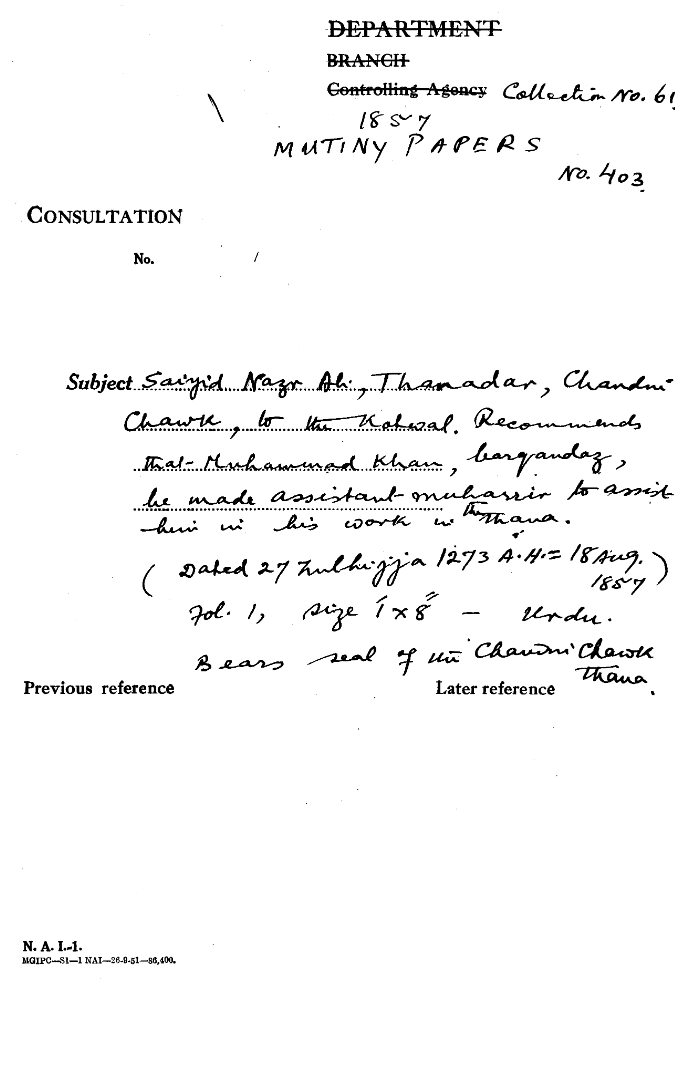 DEPARTMENT
BRANCH
Controlling Agency Collection No. 61
1857
MUTINY PAPERS
No. 403
CONSULTATION
No. /
Subject Saiyid Nazr Ali, Thanadar, Chandni
Chawk, to the Kotwal. Recommends
that Muhammad Khan, barqandaz,
be made assistant muharrir to assist
him in his work in the Thana.
(Dated 27 Zulhijja 1273 A.H. = 18 Aug.
1857)
Fol. 1, size 7" x 8" - Urdu.
Bears seal of the Chandni Chawk
Thana.
Previous reference Later reference
N. A. I.-1.
MGIPC—S1—1 NAI—26-9-51—86,400.